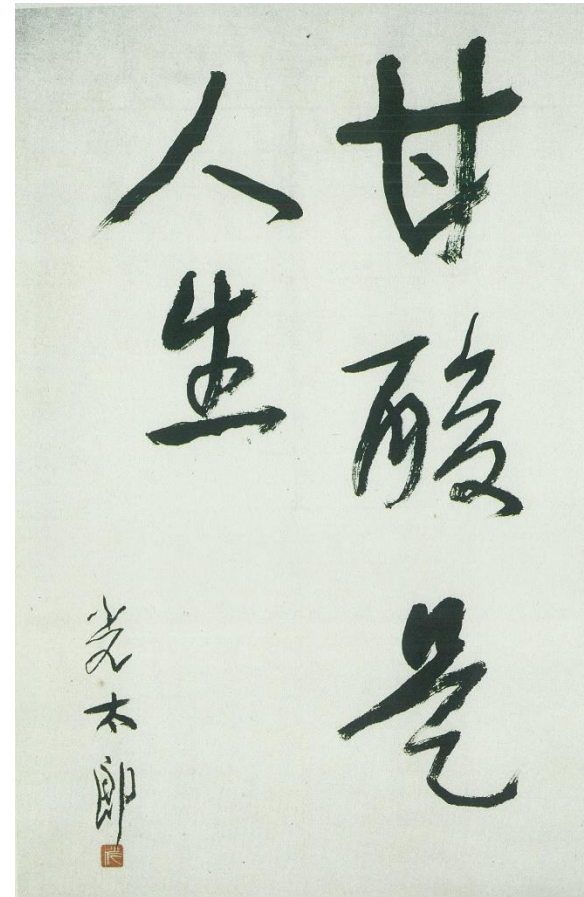 甘酸是
人生
光太郎